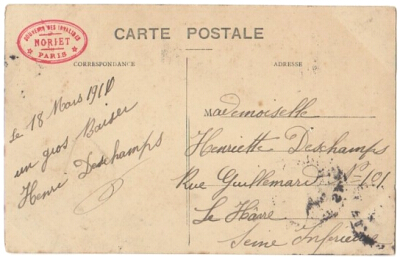 SOUVENIR DES INVALIDES
NORJET
PARIS
CARTE POSTALE
CORRESPONDANCE
ADRESSE
le 18 Mars 1910
un gros Baiser
Henri Deschamps
Mademoiselle
Henriette Deschamps
Rue Guillemard No 101
Le Hâvre
Seine Inférieure